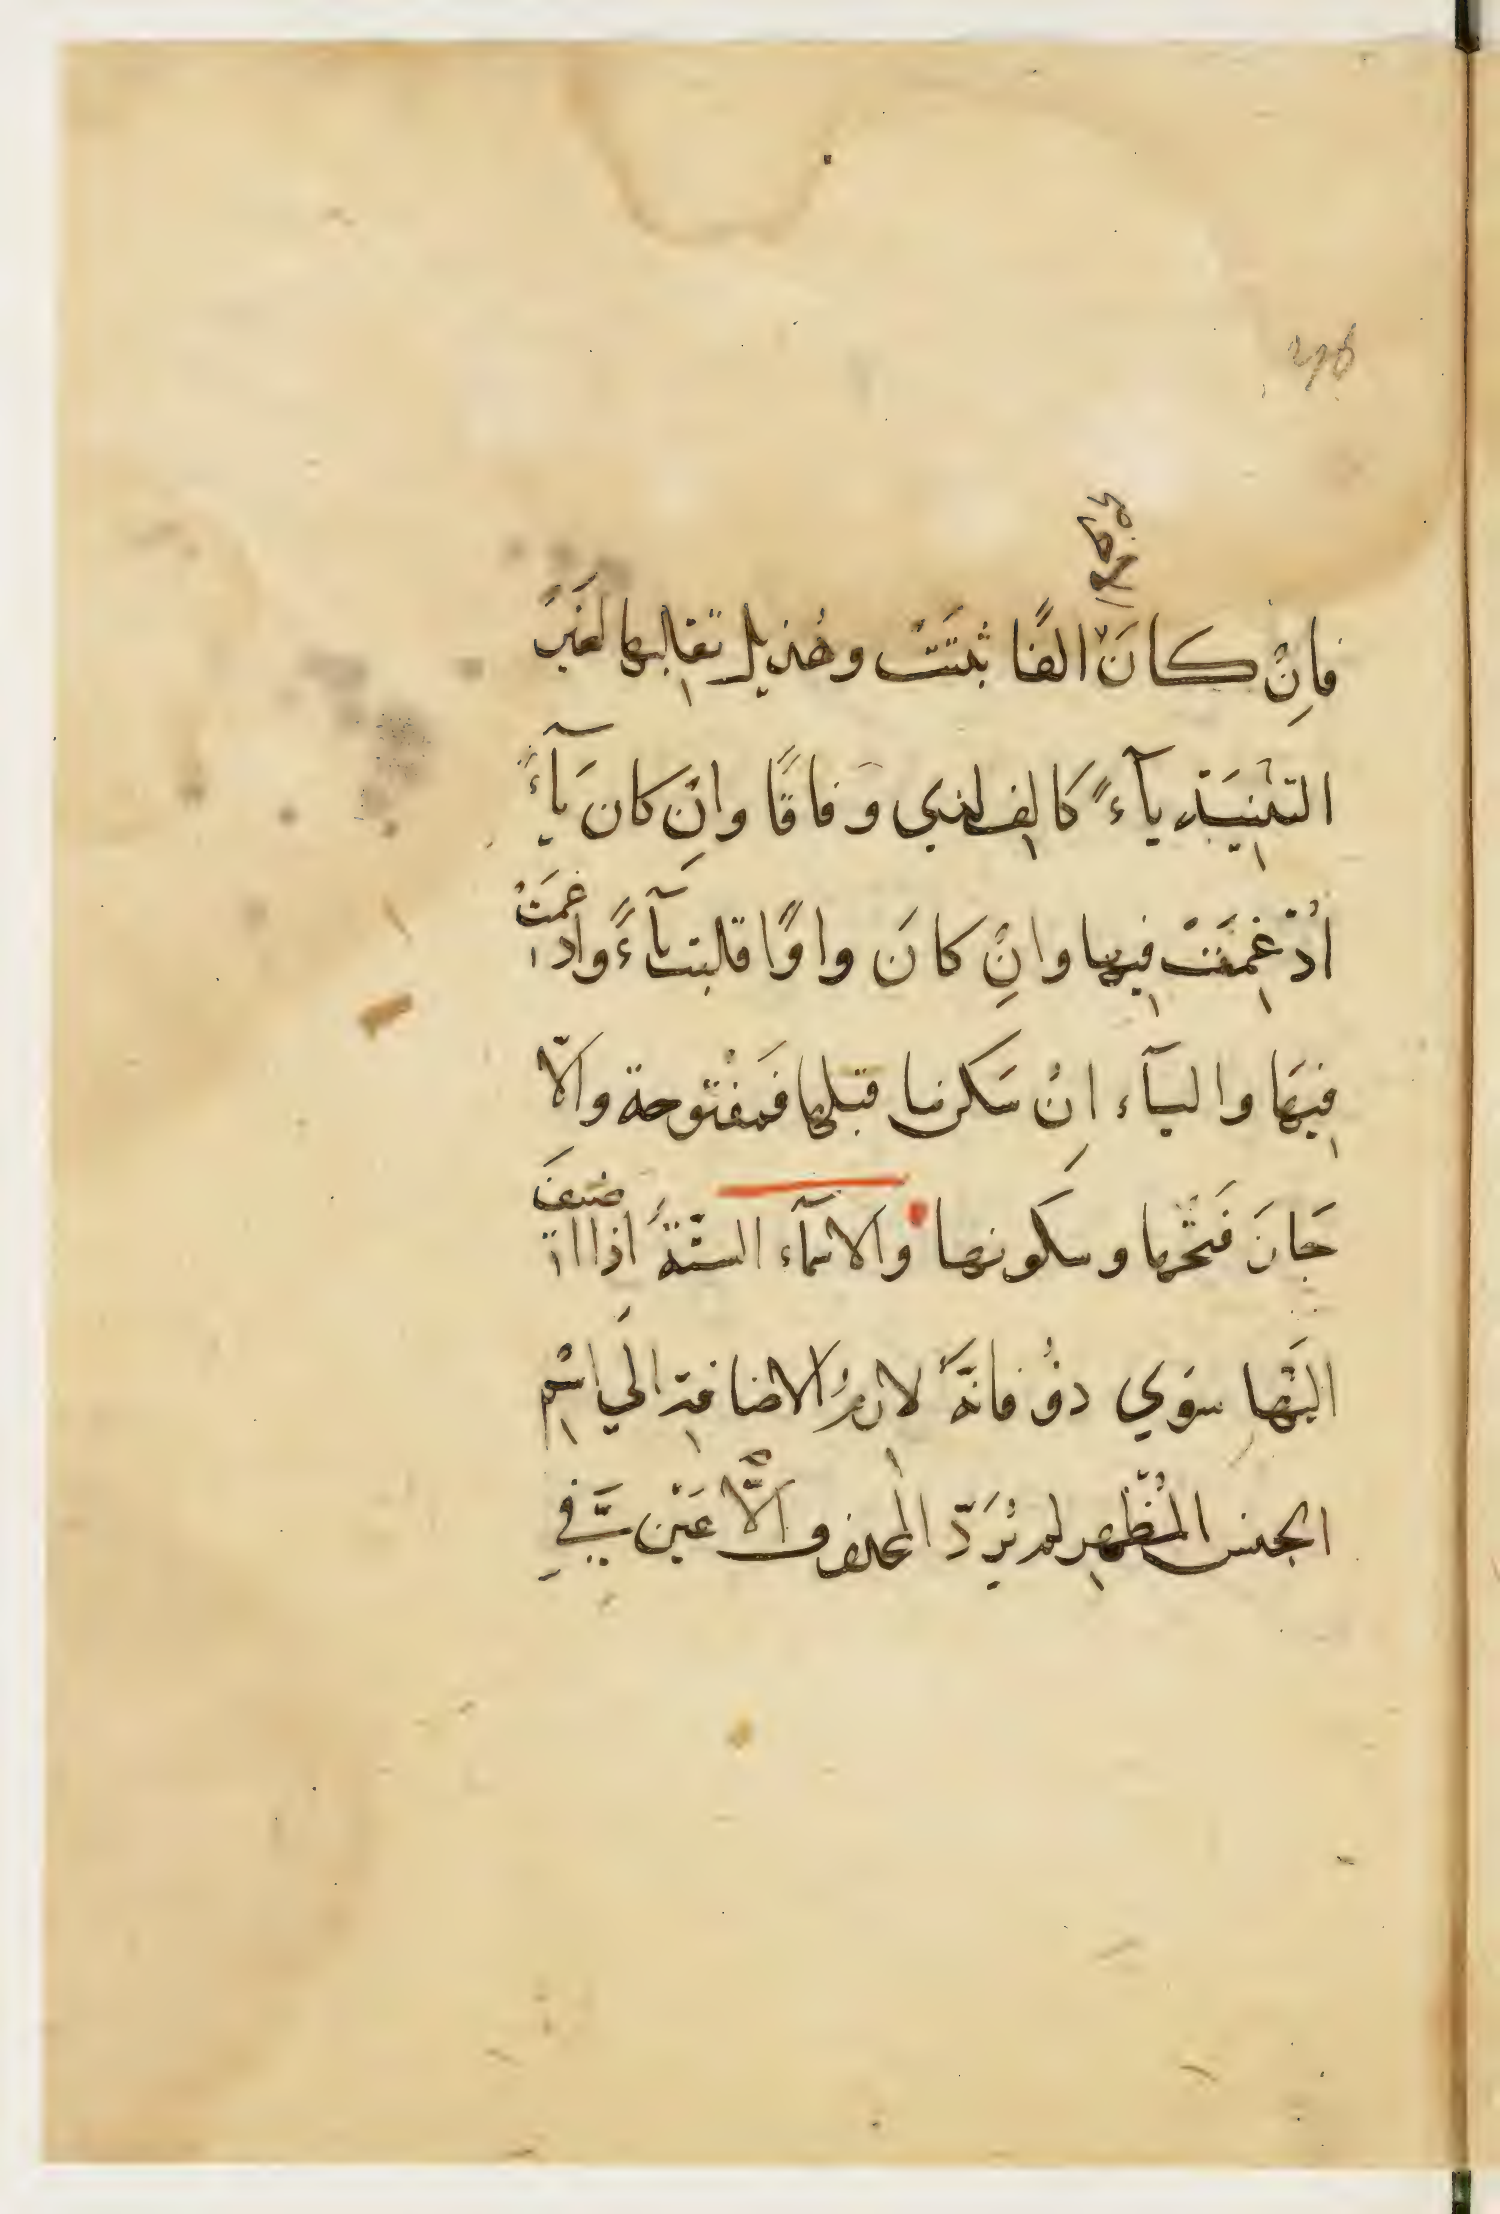 فاِنْ كانَ الفًا ثبتَتْ وهُذيل تقلبها لغَيْرِ
التثنِيَةِ يآءً كالف لدي وَفاقًا وانْ كان يآءً
اُدْغِمَتْ فيها وانْ كانَ واوًا قلبت يآءً وادغمَتْ
فِيهَا واليآء انْ سَكن ما قبلها فَمفْتوحة والّا
جَازَ فَتْحُها وسكونها والاسمآء الستّةُ اذا اضيفَ
اليَها سِوَي ذوُ فانّهَ لازمُ الاضافة الَي اسْمِ
الجنس المُظْهرِ لم يُرَدّ المحذوف الّا عَيْن فِي